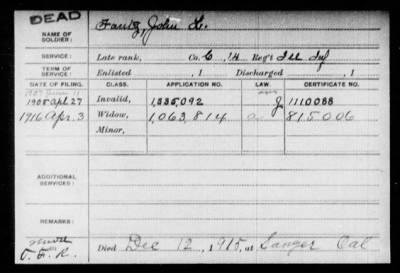 DEAD
NAME OF SOLDIER: Fautz, John L.
SERVICE: Late rank, Co. C, 14 Reg't Ill Inf
TERM OF SERVICE: Enlisted , 1 Discharged , 1
DATE OF FILING. CLASS. APPLICATION NO. LAW. CERTIFICATE NO.
1908 Apl 27 Invalid, 1,335,092 1110088
1916 Apr. 3 Widow, 1,063,814 815006
Minor,
ADDITIONAL SERVICES:
REMARKS:
Died Dec 12, 1915, at Sanger Cal